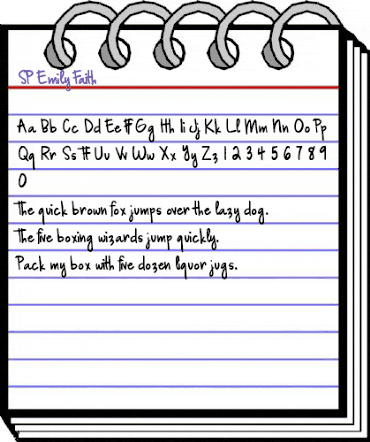 SP Emily Faith
Aa Bb Cc Dd Ee Ff Gg Hh Ii Jj Kk Ll Mm Nn Oo Pp
Qq Rr Ss Tt Uu Vv Ww Xx Yy Zz 1 2 3 4 5 6 7 8 9
0
The quick brown fox jumps over the lazy dog.
The five boxing wizards jump quickly.
Pack my box with five dozen liquor jugs.